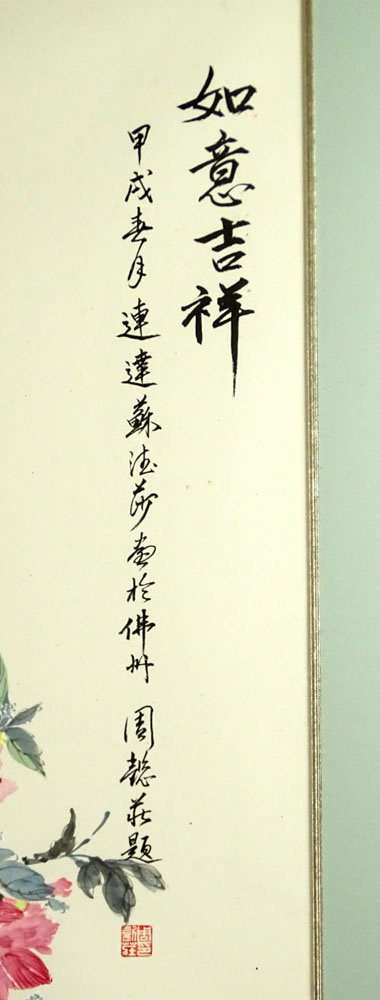 如意吉祥
甲戌春月連達蘇法莎畫於佛州 周懿莊題